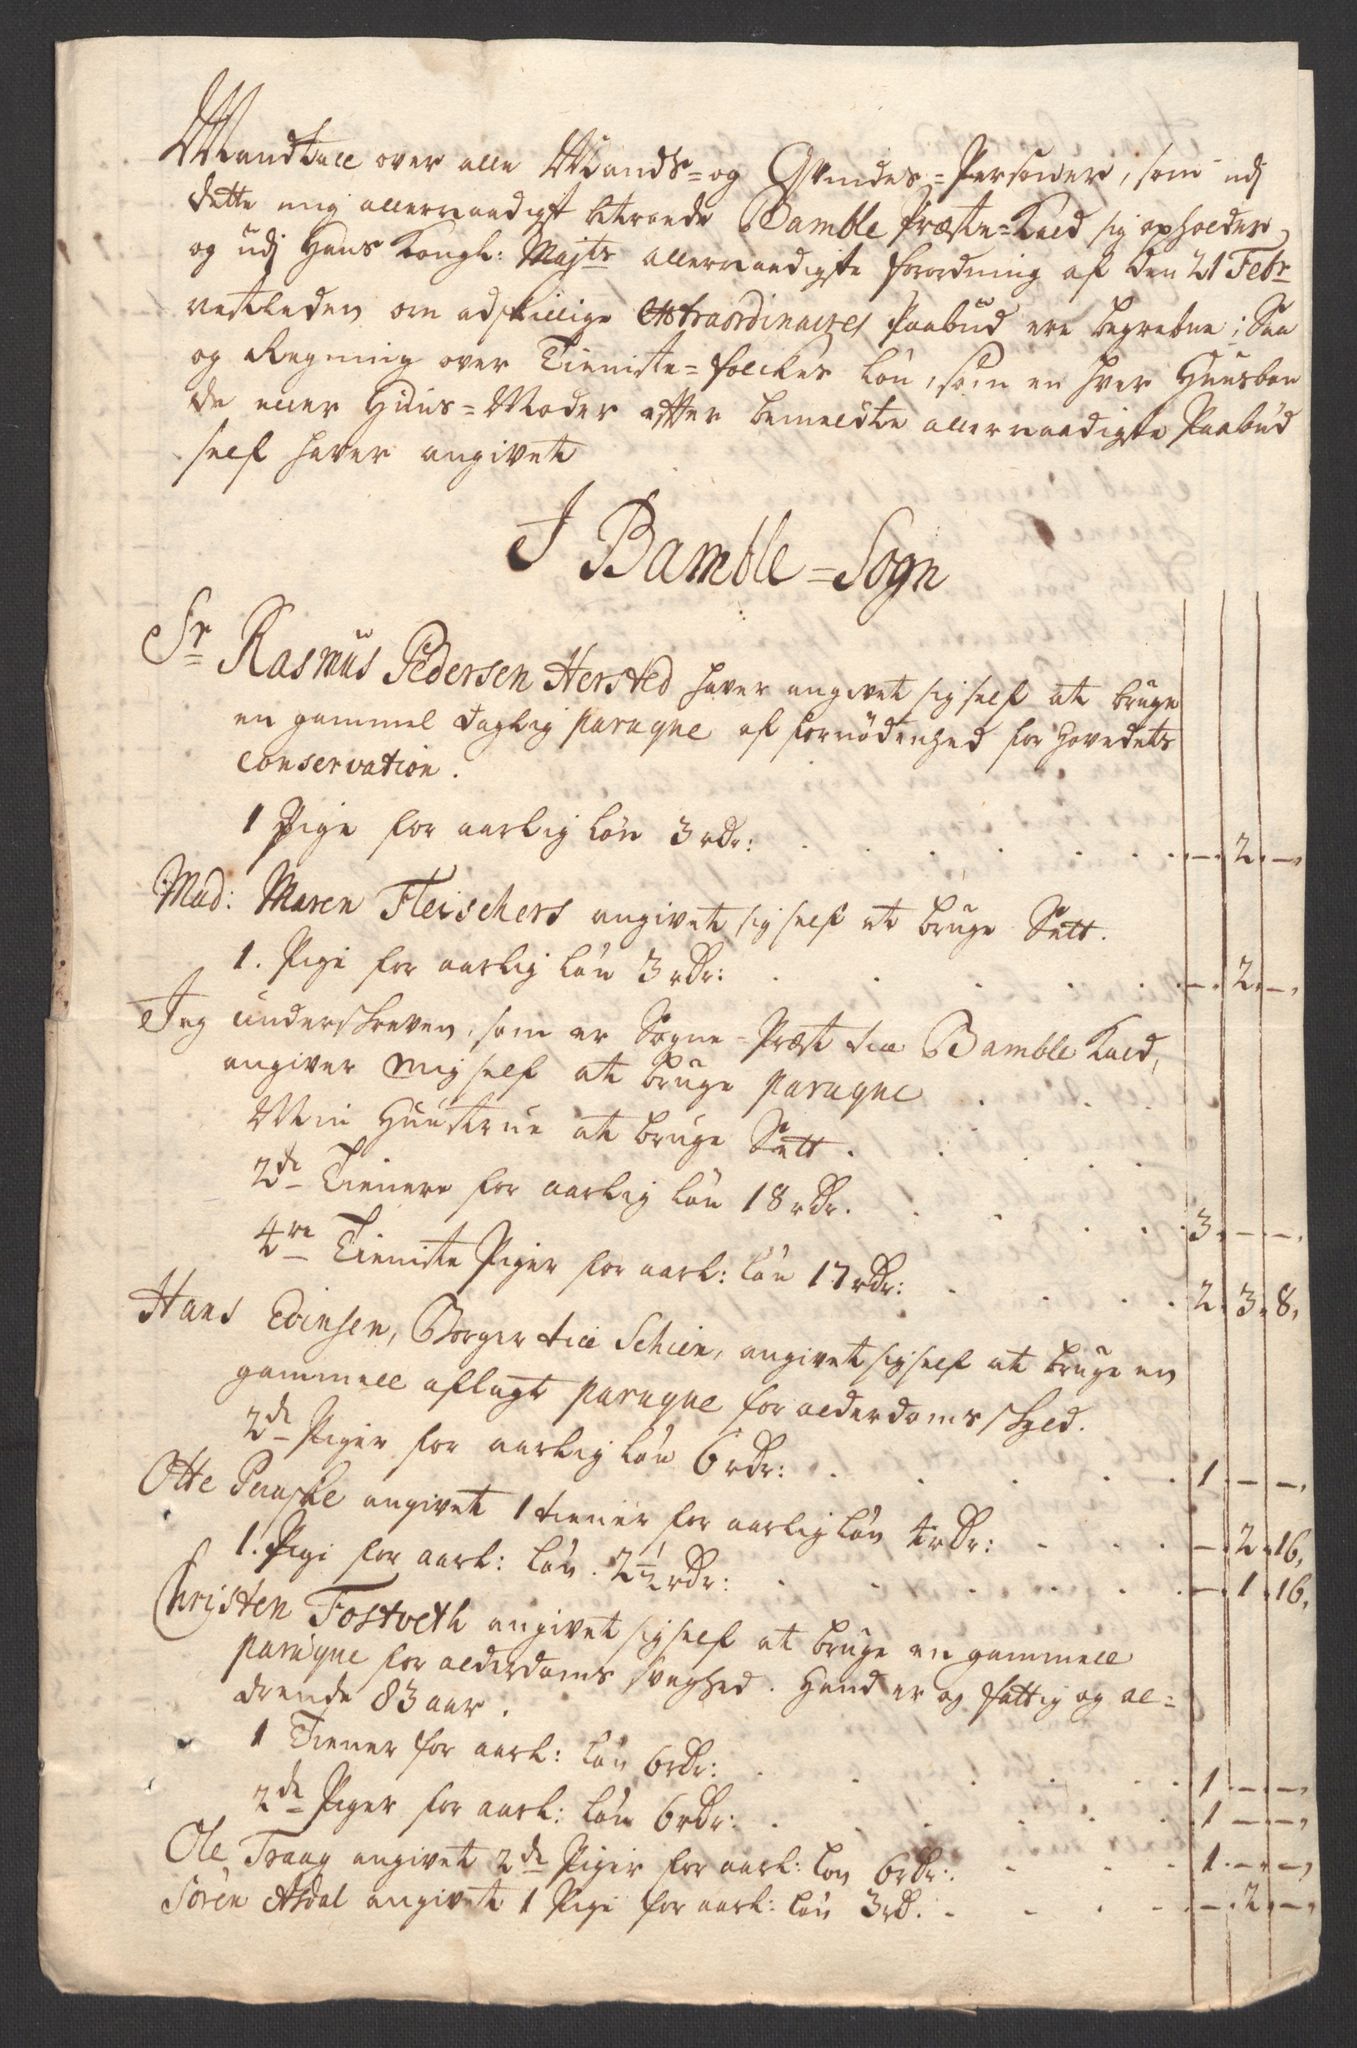 Mandtall over alle Mands= og Qvindes=Persohner, som udj
dette mig allernaadigst betroede Bamble Præste=Kald sig opholder,
og udj Hans Kongl: Majts allernaadigste forordning af den 21 Febr
vestleden om adskillige extraordinaires Paabud ere begrebne; Saa
og Regning over Tieniste=folckes Løn, som en hver Huusbon
de eller Huus=Moder efter bemeldte allernaadigste Paabud
self haver angivet
J Bamble=Sogn
Sr Rasmus Pedersen Hersted haver angivet sig self at bruge
en gammel daglig paruqve af fornödenhed for hovedets
conservation.
1 Pige for aarlig løn 3 rdr: . . . . . . - . 2 . -,
Mad: Maren Fleischers angivet sig self at bruge Sætt.
1. Pige for aarlig løn 3 rdr: . . . . . - . 2 . -,
Jeg underskreven, som er Sogne=Præst till Bamble Kald,
angiver mig self at bruge paruqve . . .
Min Hustrue at bruge Sætt. . . . .
2de Tienere for aarlig løn 18 rdr. . . . . 3 . - . -,
4re Tieniste Piger for aarl: løn 17 rdr: . . . . 2 . 3 . 8,
Hans Evensen, Borger till Schien, angivet sig self at bruge en
gammell aflagt paruqve for alderdoms skyld.
2de Piger for aarlig løn 6 rdr: . . . . . 1 . - . -,
Otte Penske angivet 1 tiener for aarlig løn 4 rdr: . . . - . 2 . 16,
1. Pige for aarl: løn 2½ rdr: . . . . . - . 1 . 16,
Christen Fostveth angivet sig self at bruge en gammell
paruqve for alderdoms svaghed. Hand er og fattig og al=
drende 83 aar.
1 Tiener for aarl: løn 6 rdr: . . . . . 1 . - . -,
2de Piger for aarl: løn 6 rdr: . . . . . 1 . - . -,
Ole Traag angivet 2de Piger for aarl: løn 6 rdr: . . . 1 . - . -,
Sören Asdal angivet 1 Pige for aarl: løn 3 rd. . . . . - . 2 . -,